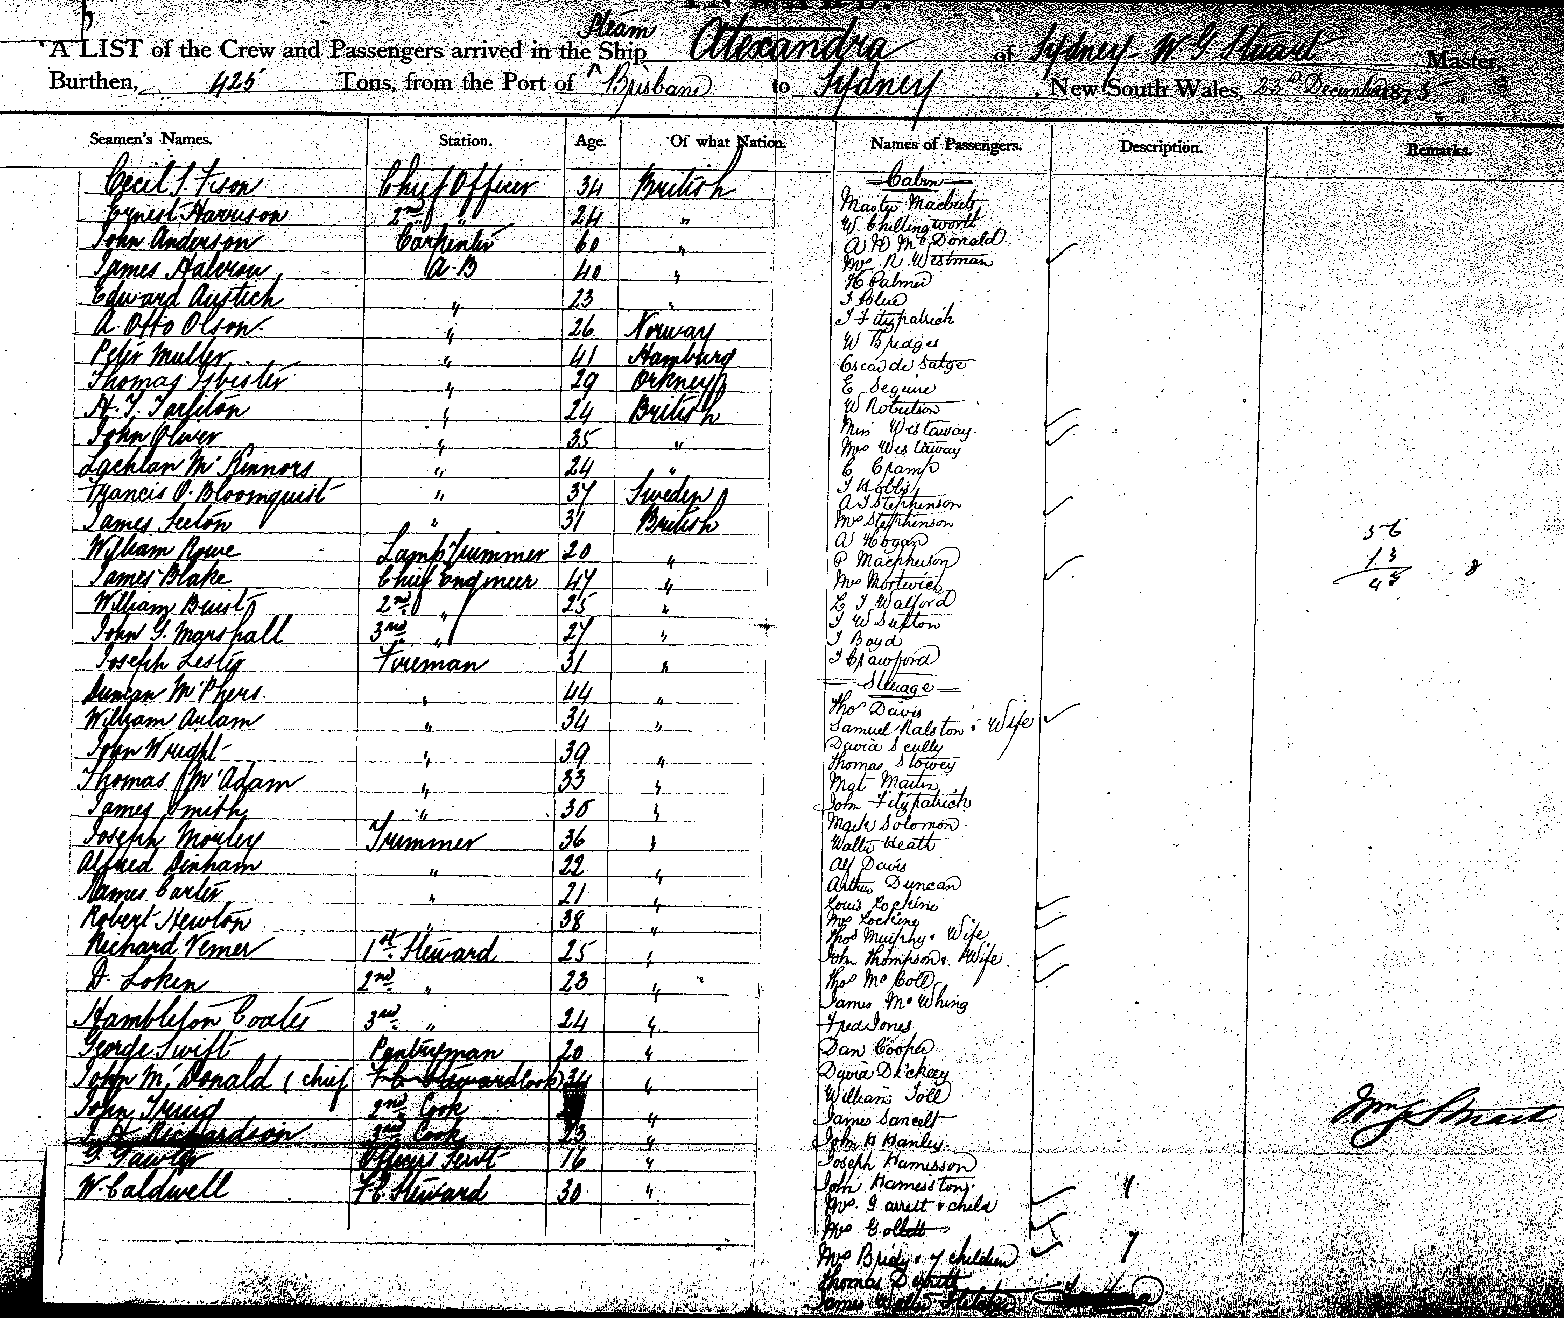 A LIST of the Crew and Passengers arrived in the Steam Ship Alexandra of Sydney W G Stuart Master,
Burthen, 425 Tons, from the Port of Brisbane to Sydney, New South Wales, 23rd December 187
Seamen's Names. Station. Age. Of what Nation. Names of Passengers. Description. Remarks.
Cecil J. Fison Chief Officer 34 British
Ernest Harrison 2nd " 24 "
John Anderson Carpenter 60 "
James A.B 40 "
Edward Austich " 23 "
A Otto Olson " 26 Norway
Peter Muller " 41 Hamburg
Thomas Isbister " 29 Orkney
H. T. Tarliton " 24 British
John Oliver " 35 "
Lachlan Mc Kinnors " 24 "
Francis O. Bloomquist " 37 Sweden
James Seeton " 31 British
William Rowe Lamp Trimmer 20 "
James Blake Chief Engineer 47 "
William Buist 2nd " 25 "
John G. Marshall 3rd " 27 "
Joseph Leslie Foreman 31 "
Duncan McPhers " 44 "
William Aulam " 34 "
John Wright " 39 "
Thomas McAdam " 33 "
James Smith " 30 "
Joseph Morley Trimmer 36 "
Alfred Dinham " 22 "
James Carter " 21 "
Robert Newton " 38 "
Richard Vemer 1st Steward 25 "
D. Loken 2nd " 23 "
Hambleton Coates 3rd " 24 "
George Swift Pantryman 20 "
John McDonald (chief Cook) 34 "
John Irving 2nd Cook "
Richardson 3rd Cook 23 "
G Gawler Officers Servt 16 "
W. Caldwell F.C. Steward 30 "
Cabin
Master Macbeth
W Chillingworth
A H McDonald
Mrs R Westman
H Palmer
J Blue
J Fitzpatrick
W Bridges
Oscar de Satge
E Seguire
W Robertson
Miss Westaway
Mrs Westaway
C Cramp
J Hollis
A J Stephenson
Mrs Stephenson
A Hogan
P Macpherson
Mrs Mortwich
L J Walford
J W Sutton
J Boyd
J Crawford
Steerage
Thos Davis
Samuel Ralston & Wife
David Scully
Thomas Stowey
Mgt Martin
John Fitzpatrick
Mark Solomon
Walter Heath
Alf Davis
Arthur Duncan
Louis Lockine
Mrs Lockine
Thos Murphy & Wife
John Thompson & Wife
Thos McColl
James McWhing
Fred Jones
Dan Cooper
David Dickey
William Toll
James Sancelt
John H Hanley
Joseph Hamisson
John Hamisston
Mrs Garrett & child
Mrs
Mrs Bridy & 7 children 7
Thomas
James
56
13
43 8
Wm G Stuart